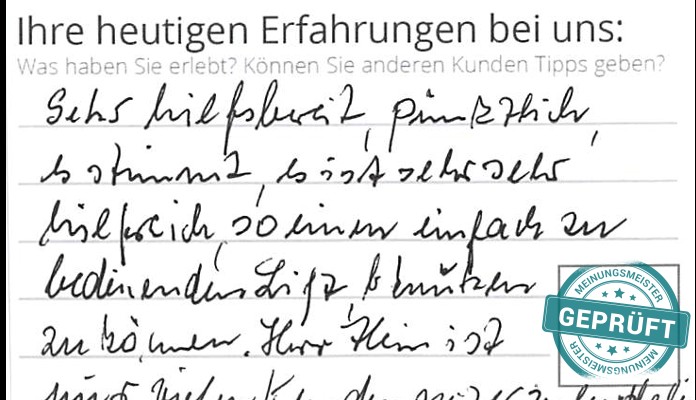 Ihre heutigen Erfahrungen bei uns:
Was haben Sie erlebt? Können Sie anderen Kunden Tipps geben?
Sehr hilfsbereit, pünktlich,
es stimmt, es ist sehr sehr
hilfreich, so einen einfach zu
bedienenden Lift benützen
zu können. Herr ist
MEINUNGSMEISTER
GEPRÜFT
MEINUNGSMEISTER